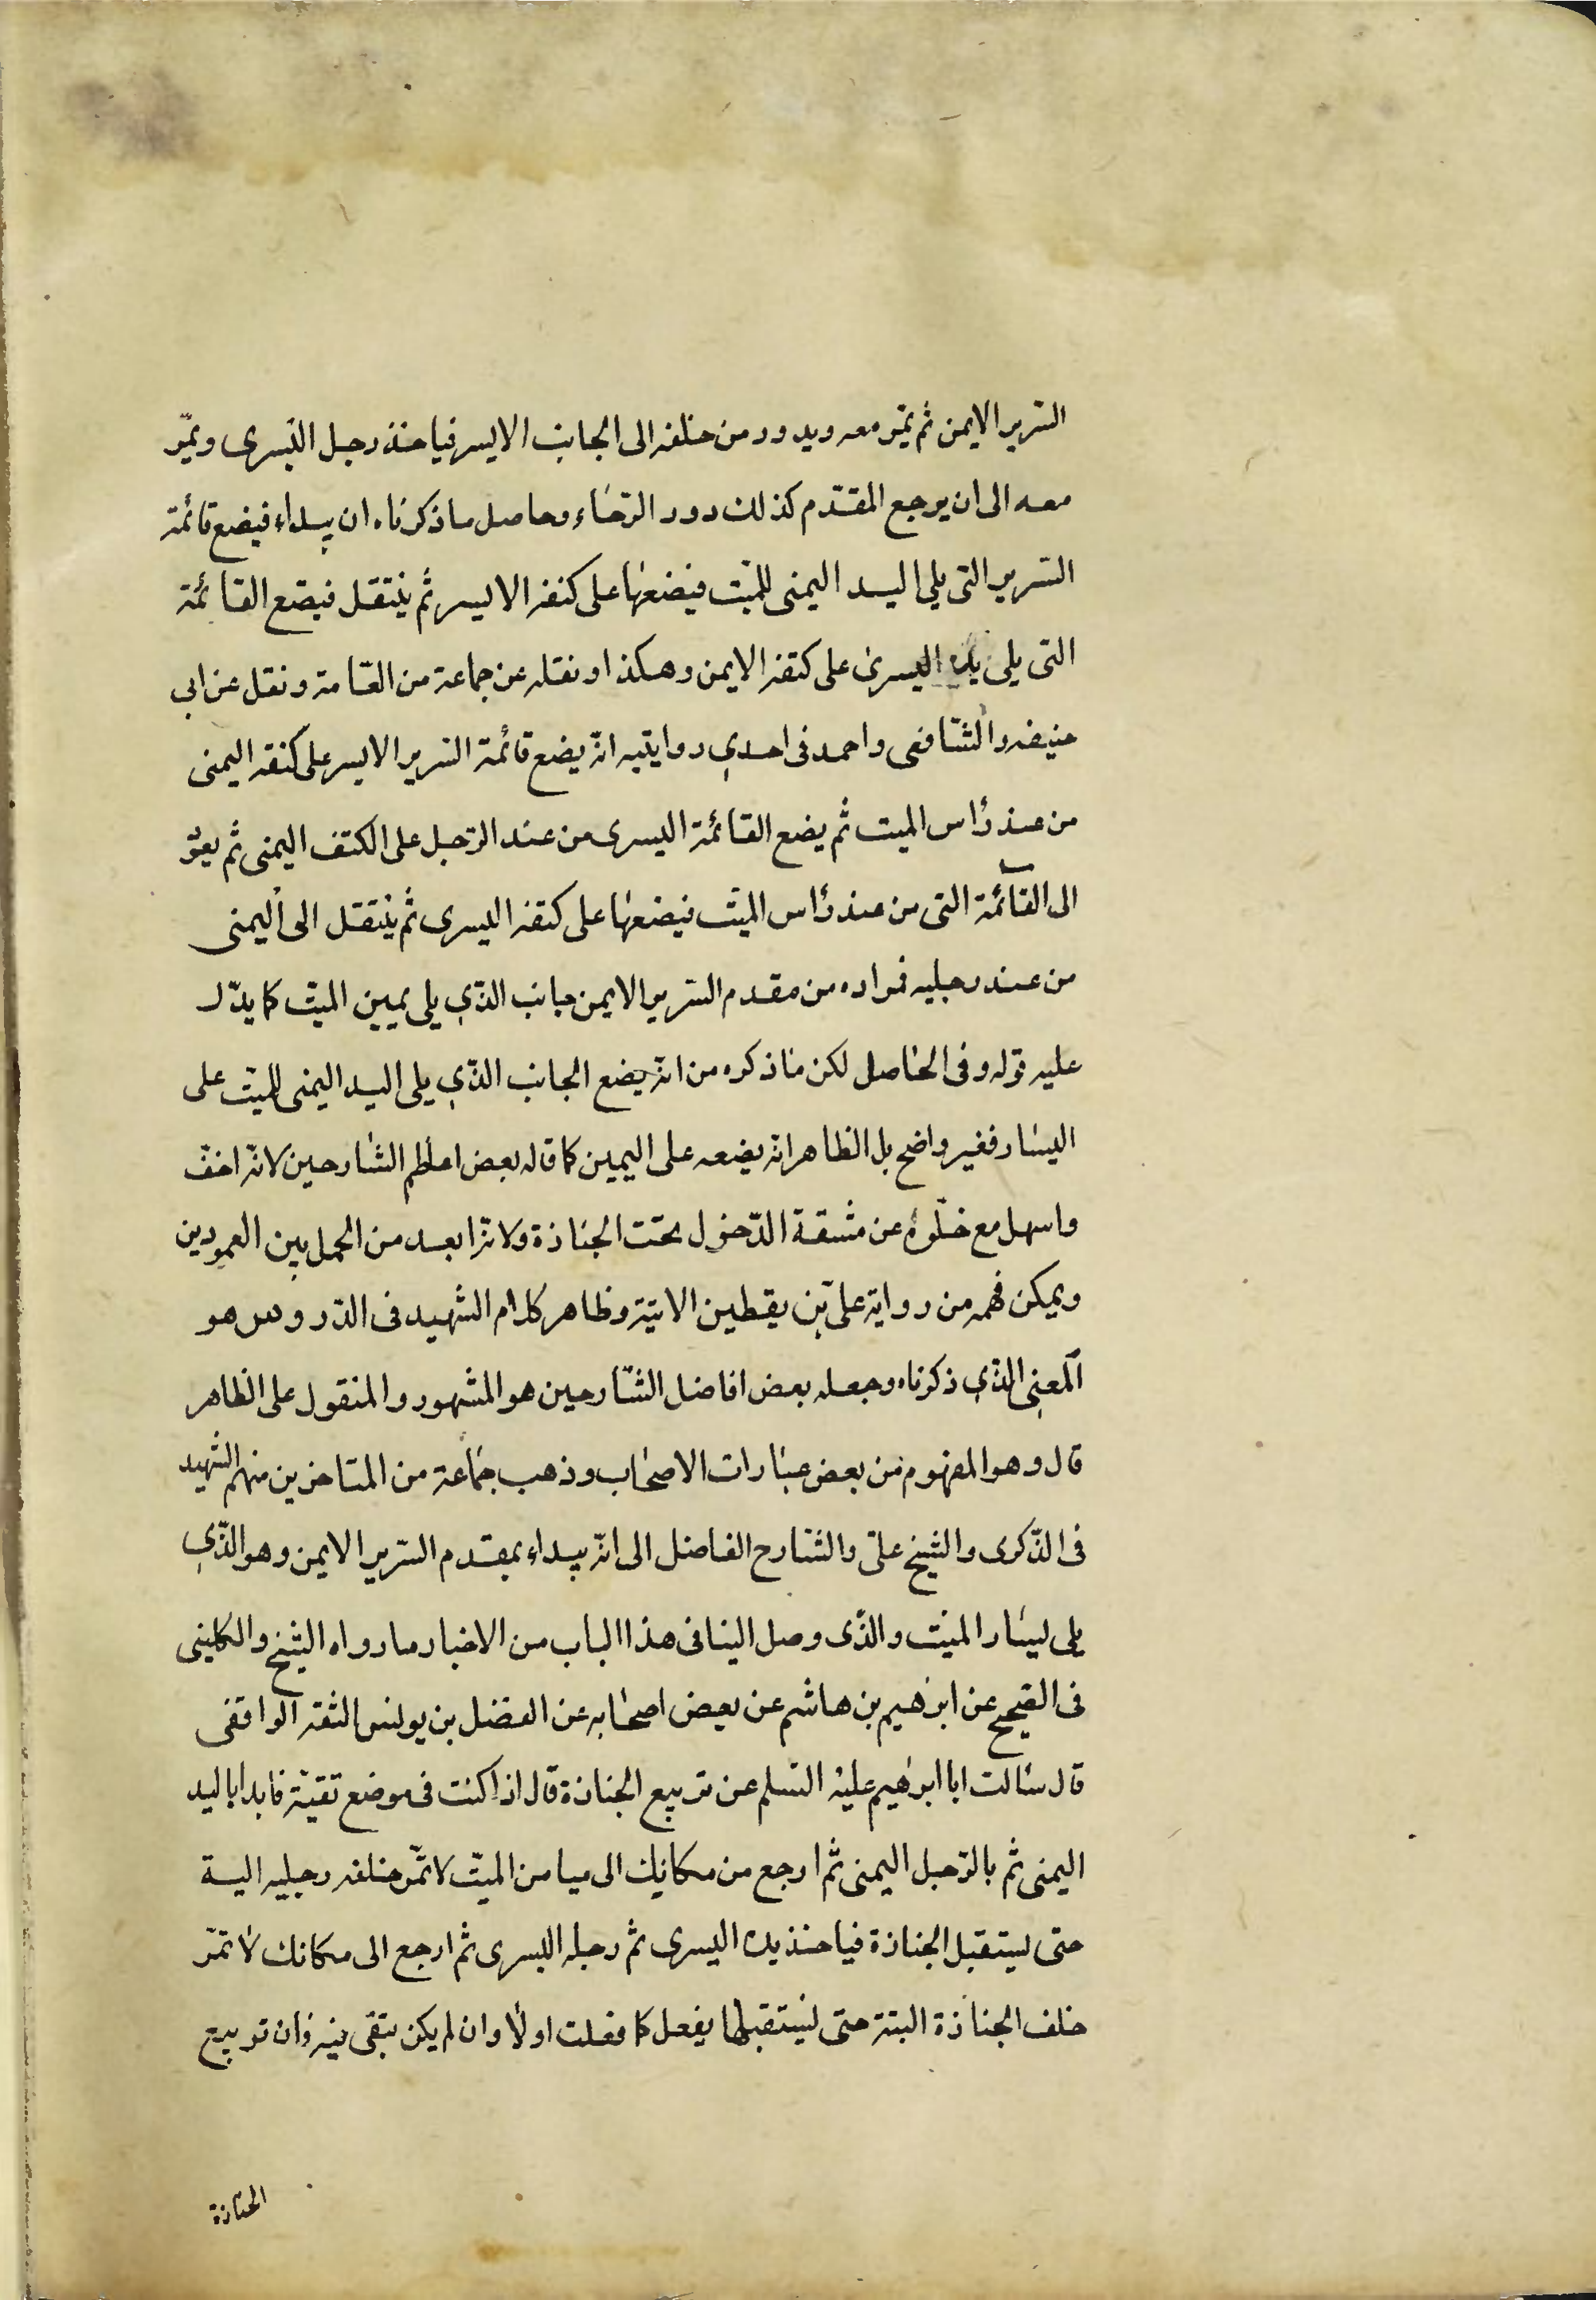 السّرير الايمن ثم يمّر معه ويدور من خلفه الى الجانب الايسر فياخذ رجل اليسرى ويمّر
معه الى ان يرجع المقدّم كذلك دور الرّحاء وحاصل ما ذكرناه ان يبداء فيضع قائمة
السّرير التى يلى اليد اليمنى للميّت فيضعها على كتفه الايسر ثم ينتقل فيضع القائمة
التى يلى يده اليسرى على كتفه الايمن وهكذا ونقله عن جماعة من العّامة ونقل عن ابى
حنيفه والشّافعى واحمد فى احدى روايتيه انّه يضع قائمة السّرير الايسر على كتفه اليمنى
من عند رأس الميت ثم يضع القائمة اليسرى من عند الرّجل على الكتف اليمنى ثم يعوّ
الى القائمة التى من عند رأس الميّت فيضعها على كتفه اليسرى ثم ينتقل الى اليمنى
من عند رجليه فمراده من مقدم السّرير الايمن جانب الذّى يلى يمين الميّت كما يدّل
عليه قوله وفى الحاصل لكن ما ذكره من انّه يضع الجانب الذّى يلى اليد اليمنى للميّت على
اليسار فغير واضح بل الظاهر انّه يضعه على اليمين كما قاله بعض اعاظم الشارحين لانّه اخفّ
واسهل مع خلّوه عن مشقة الدّخول تحت الجنازة ولانّه ابعد من الحمل بين العمودين
ويمكن فهمه من رواية علىّ بن يقطين الاتية وظاهر كلام الشهيد فى الدّروس هو
المعنى الذّى ذكرناه وجعله بعض افاضل الشّارحين هو المشهور والمنقول على الظاهر
قال وهو المفهوم من بعض عبارات الاصحاب وذهب جماعة من المتاخرين منهم الشهيد
فى الذّكرى والشيخ علىّ والشّارح الفاضل الى انّه يبداء بمقدم السّرير الايمن وهو الذّى
يلى ليسار الميّت والذّى وصل الينا فى هذا الباب من الاخبار ما رواه الشيخ والكلينى
فى الصّحيح عن ابرهيم بن هاشم عن بعض اصحابه عن الفضل بن يونس الثقه الواقفى
قال سألت ابا ابرهيم عليه السّلم عن تربيع الجنازة قال اذا كنت فى موضع تقيّة فابدا باليد
اليمنى ثم بالرّجل اليمنى ثم ارجع من مكانك الى ميامن الميّت لا تمّر خلفه رجليه البتة
حتى يستقبل الجنازة فياخذ يده اليسرى ثم رجله اليسرى ثم ارجع الى مكانك لا تمّر
خلف الجنازة البتة حتى تستقبلها يفعل كما فعلت اولا وان لم يكن يتقى فيه فان تربيع
الجنازة